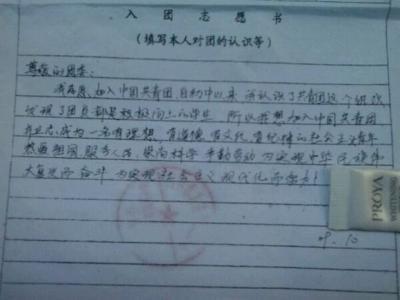 入团志愿书
(填写本人对团的认识等)
尊敬的团委:
我志愿加入中国共青团,自初中以来,我认识了共青团这个组织
发现了团员都是积极向上的学生 所以我想加入中国共青团
成为一名有理想、有道德、有文化、有纪律的社会主义青年
热爱祖国,服务人民,崇尚科学 辛勤劳动 为实现中华民族伟
大复兴而奋斗 为实现社会主义现代化而奋斗!
PROYA